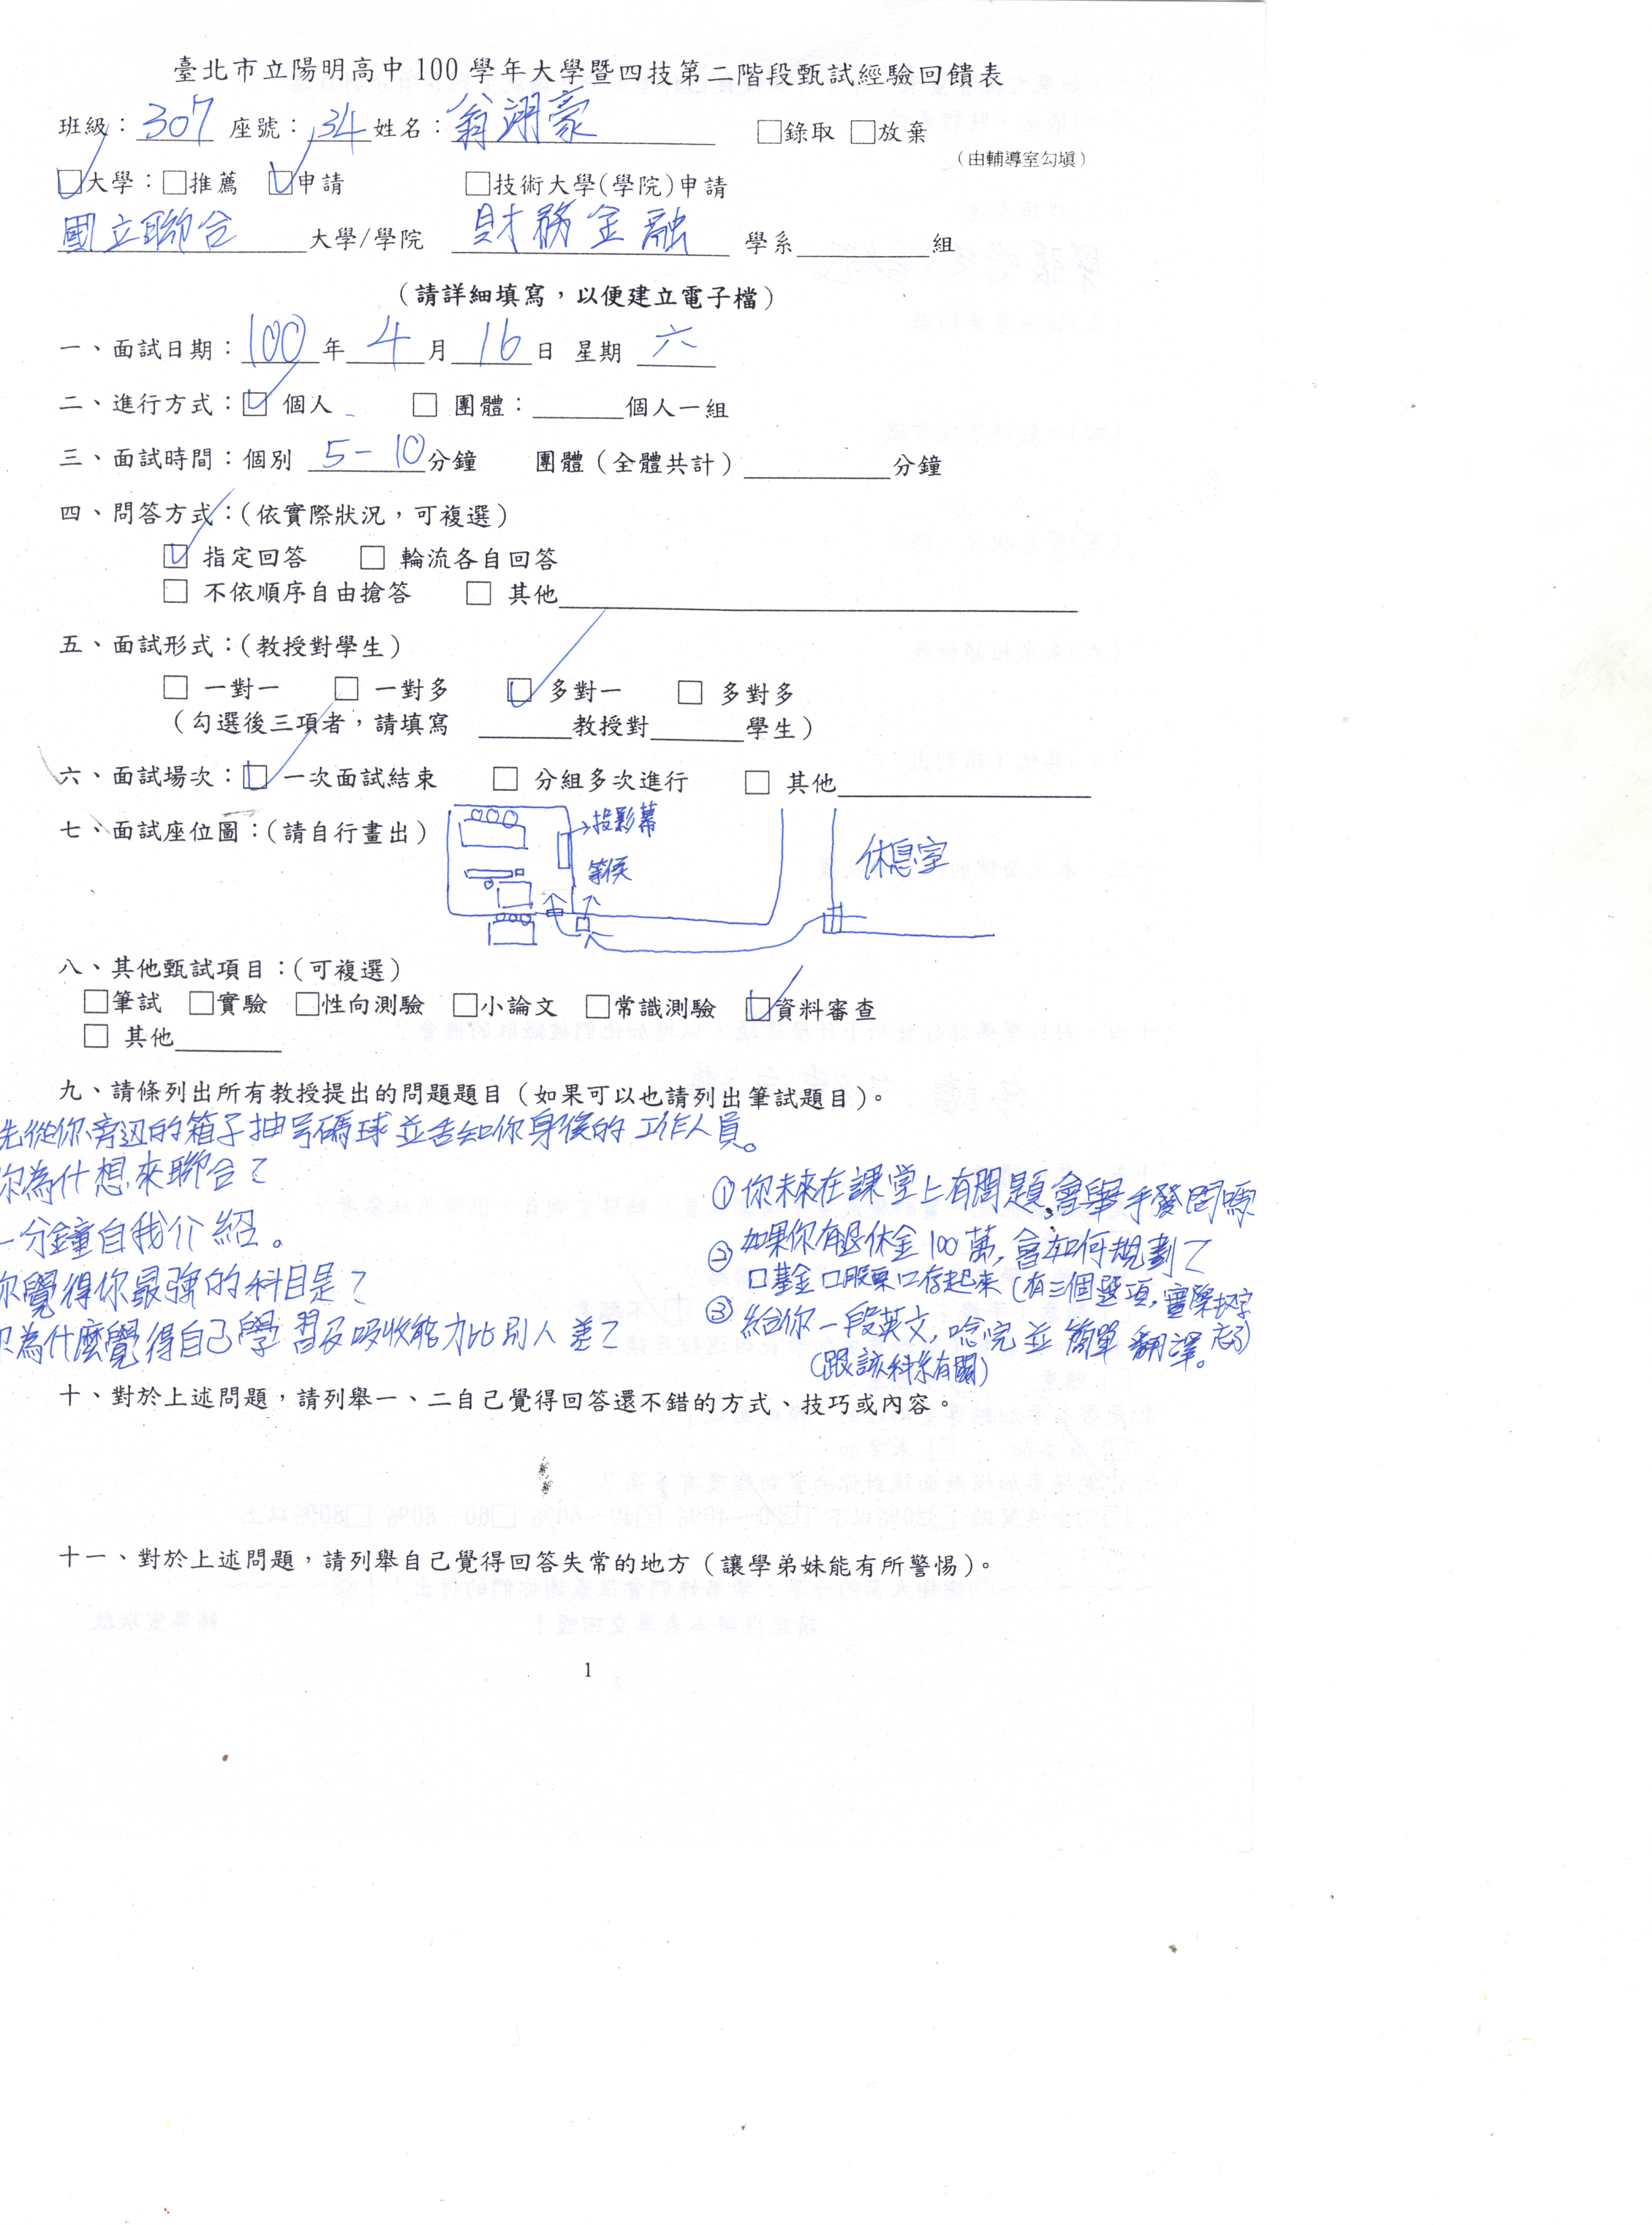 臺北市立陽明高中100學年大學暨四技第二階段甄試經驗回饋表
班級：307 座號：34 姓名：翁翊豪 □錄取 □放棄
（由輔導室勾填）
☑大學：□推薦 ☑申請 □技術大學(學院)申請
國立聯合大學/學院 財務金融 學系______組
（請詳細填寫，以便建立電子檔）
一、面試日期：100年4月16日 星期 六
二、進行方式：☑ 個人 □ 團體：______個人一組
三、面試時間：個別 5-10分鐘 團體（全體共計）______分鐘
四、問答方式：(依實際狀況，可複選)
☑ 指定回答 □ 輪流各自回答
□ 不依順序自由搶答 □ 其他______
五、面試形式：(教授對學生)
□ 一對一 □ 一對多 ☑ 多對一 □ 多對多
（勾選後三項者，請填寫 ______教授對______學生）
六、面試場次：☑ 一次面試結束 □ 分組多次進行 □ 其他______
七、面試座位圖：(請自行畫出)
投影幕
等候
休息室
八、其他甄試項目：(可複選)
□筆試 □實驗 □性向測驗 □小論文 □常識測驗 ☑資料審查
□ 其他______
九、請條列出所有教授提出的問題題目（如果可以也請列出筆試題目）。
先從你旁边的箱子抽号碼球並告知你身後的工作人員。
你為什想來聯合？
一分鐘自我介紹。
你覺得你最強的科目是？
你為什麼覺得自己學習及吸收能力比別人差？
① 你未來在課堂上有問題會舉手發問嗎
② 如果你有退休金100萬，會如何規劃？
□基金□股票□存起來（有三個選項，實際文字忘了）
③ 給你一段英文，唸完並簡單翻譯。
（跟該科系有關）
十、對於上述問題，請列舉一、二自己覺得回答還不錯的方式、技巧或內容。
十一、對於上述問題，請列舉自己覺得回答失常的地方（讓學弟妹能有所警惕）。
1